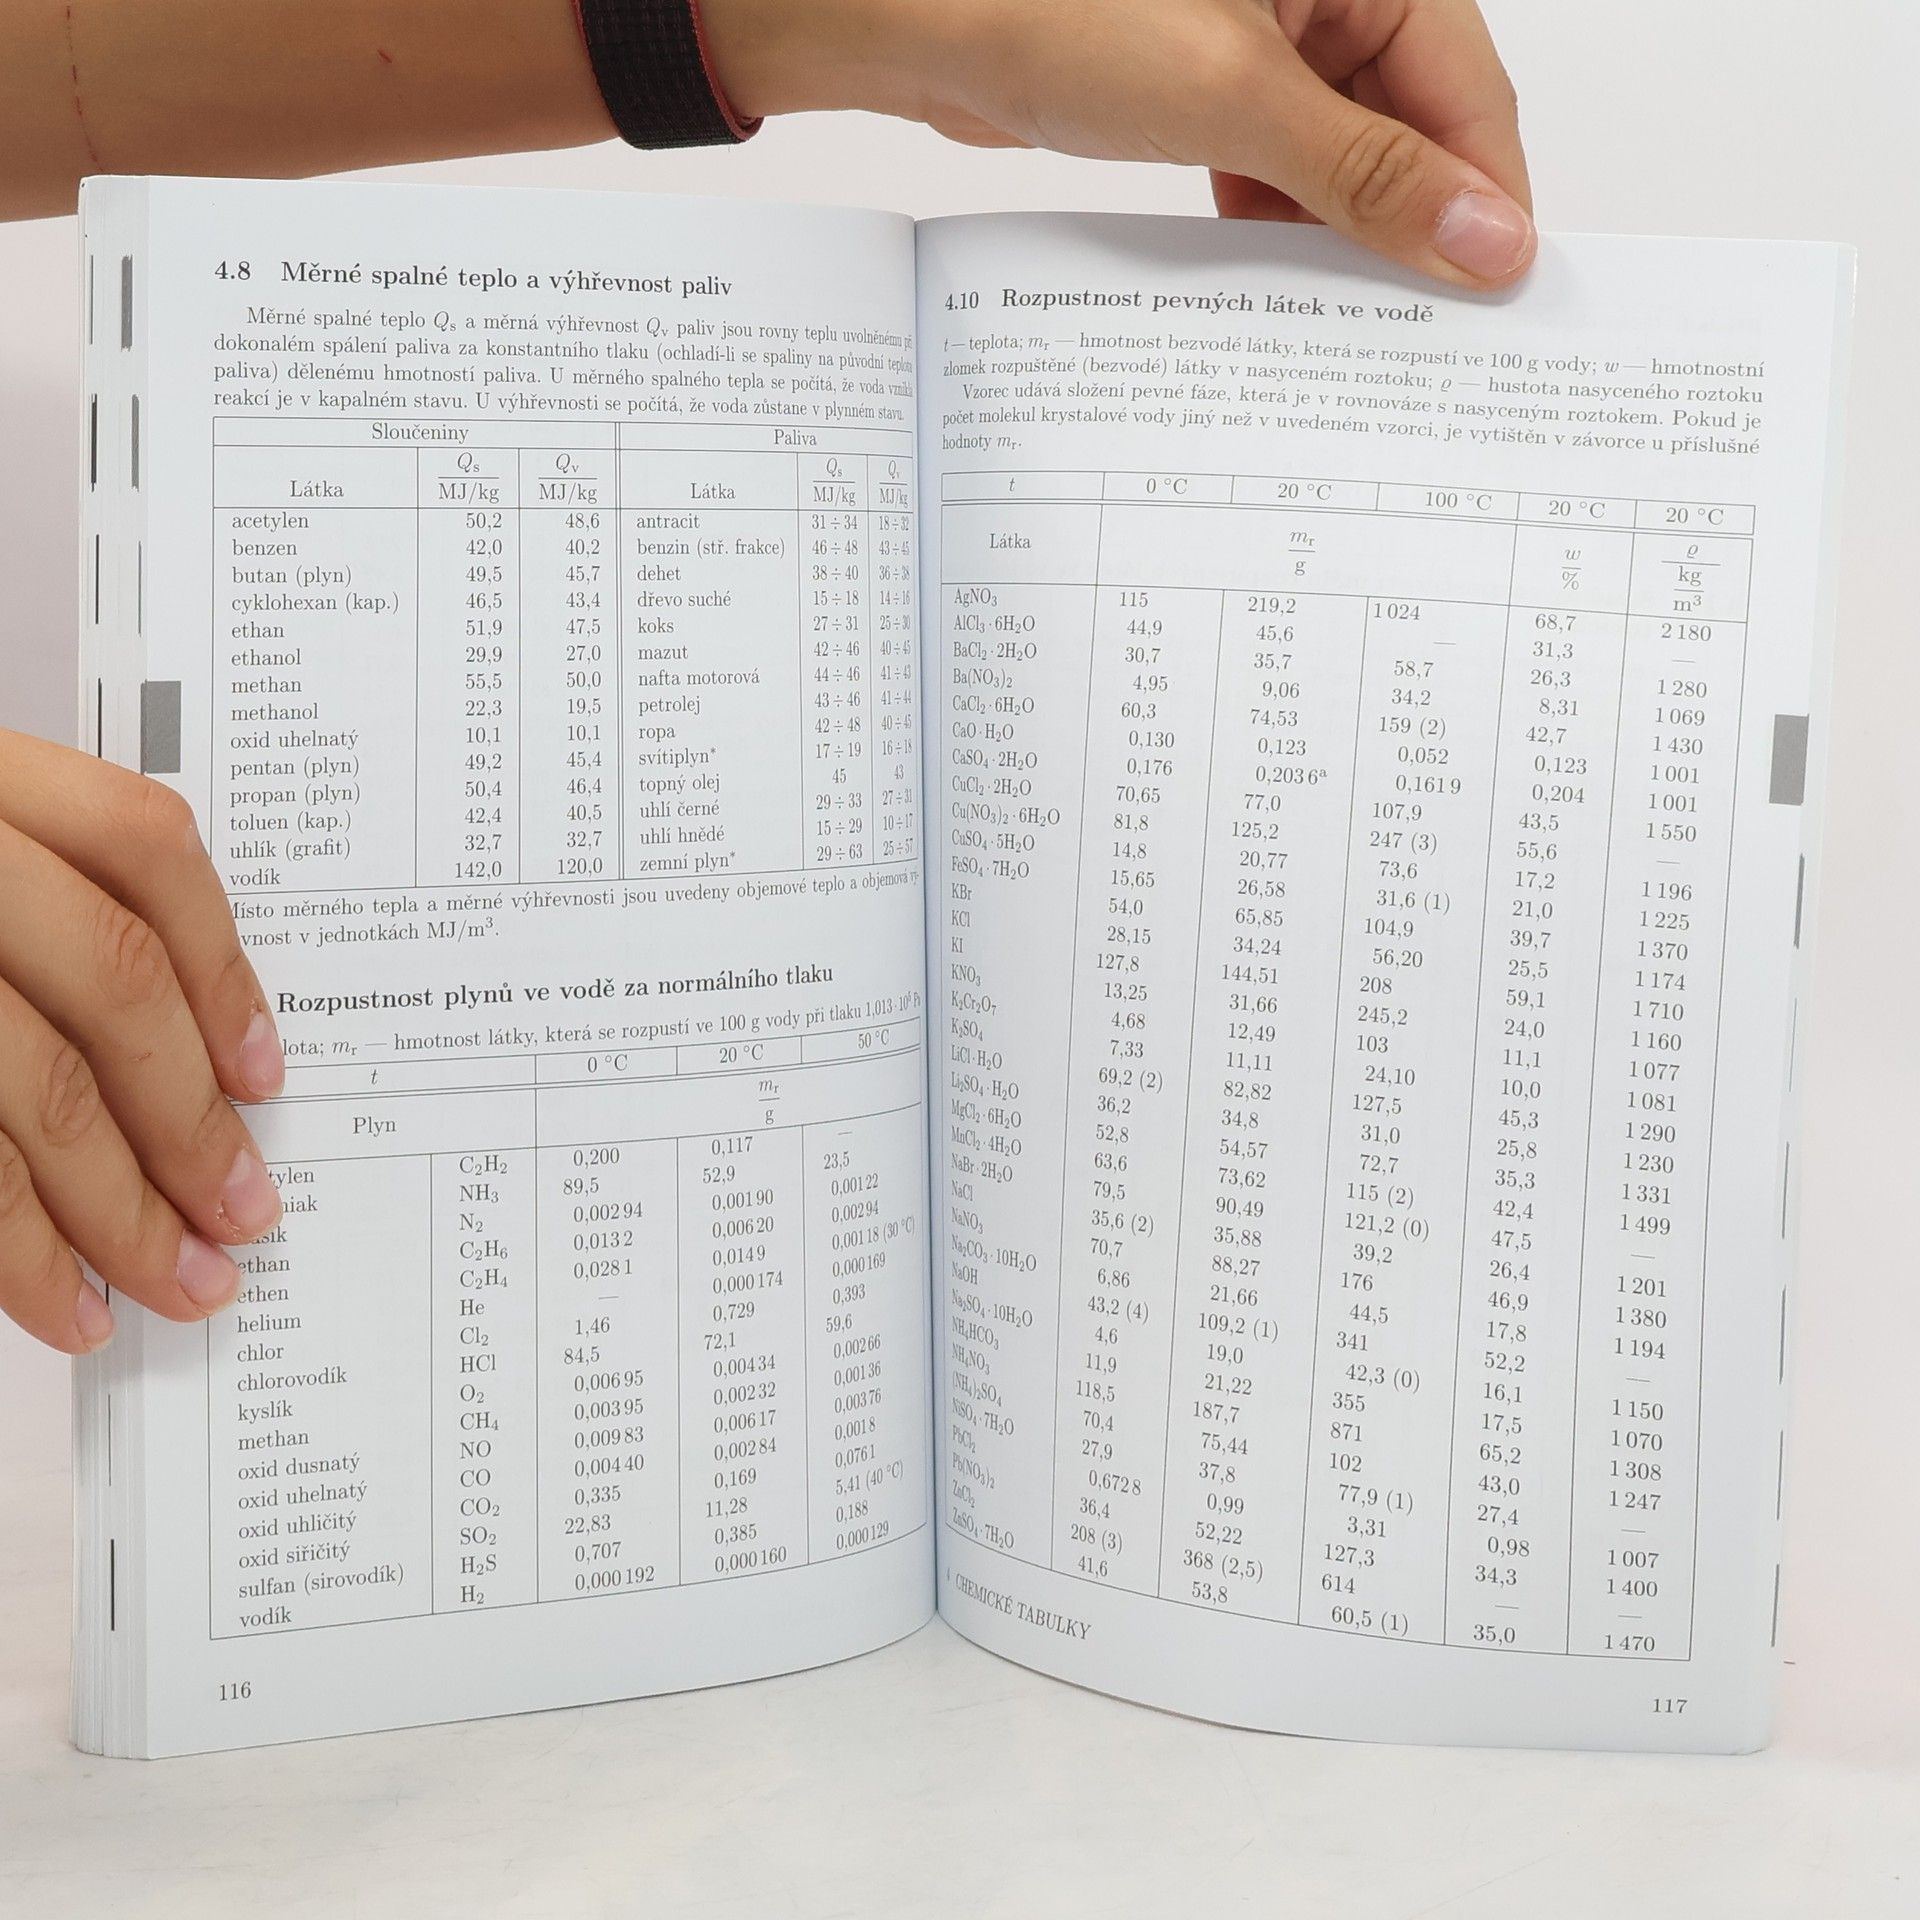 4.8 Měrné spalné teplo a výhřevnost paliv
Měrné spalné teplo Qₛ a měrná výhřevnost Qᵥ paliv jsou rovny teplu uvolněnému př
dokonalém spálení paliva za konstantního tlaku (ochladí-li se spaliny na původní teplotu
paliva) dělenému hmotností paliva. U měrného spalného tepla se počítá, že voda vzniklá
reakcí je v kapalném stavu. U výhřevnosti se počítá, že voda zůstane v plynném stavu.
Sloučeniny Paliva
Látka Qₛ MJ/kg Qᵥ MJ/kg Látka Qₛ MJ/kg Qᵥ MJ/kg
acetylen 50,2 48,6 antracit 31÷34 18÷32
benzen 42,0 40,2 benzin (stř. frakce) 46÷48 43÷45
butan (plyn) 49,5 45,7 dehet 38÷40 36÷38
cyklohexan (kap.) 46,5 43,4 dřevo suché 15÷18 14÷16
ethan 51,9 47,5 koks 27÷31 25÷30
ethanol 29,9 27,0 mazut 42÷46 40÷45
methan 55,5 50,0 nafta motorová 44÷46 41÷43
methanol 22,3 19,5 petrolej 43÷46 41÷44
oxid uhelnatý 10,1 10,1 ropa 42÷48 40÷45
pentan (plyn) 49,2 45,4 svítiplyn* 17÷19 16÷18
propan (plyn) 50,4 46,4 topný olej 45 43
toluen (kap.) 42,4 40,5 uhlí černé 29÷33 27÷31
uhlík (grafit) 32,7 32,7 uhlí hnědé 15÷29 10÷17
vodík 142,0 120,0 zemní plyn* 29÷63 25÷57
Místo měrného tepla a měrné výhřevnosti jsou uvedeny objemové teplo a objemová vý-
vnost v jednotkách MJ/m³.
Rozpustnost plynů ve vodě za normálního tlaku
lota; mᵣ — hmotnost látky, která se rozpustí ve 100 g vody při tlaku 1,013·10⁵ Pa
t 0 °C 20 °C 50 °C
Plyn mᵣ g
tylen C₂H₂ 0,200 0,117 —
niak NH₃ 89,5 52,9 23,5
sík N₂ 0,002 94 0,001 90 0,001 22
ethan C₂H₆ 0,013 2 0,006 20 0,002 94
ethen C₂H₄ 0,028 1 0,014 9 0,001 18 (30 °C)
helium He — 0,000 174 0,000 169
chlor Cl₂ 1,46 0,729 0,393
chlorovodík HCl 84,5 72,1 59,6
kyslík O₂ 0,006 95 0,004 34 0,002 66
methan CH₄ 0,003 95 0,002 32 0,001 36
oxid dusnatý NO 0,009 83 0,006 17 0,003 76
oxid uhelnatý CO 0,004 40 0,002 84 0,0018
oxid uhličitý CO₂ 0,335 0,169 0,0761
oxid siřičitý SO₂ 22,83 11,28 5,41 (40 °C)
sulfan (sirovodík) H₂S 0,707 0,385 0,188
vodík H₂ 0,000 192 0,000 160 0,000 129
116
4.10 Rozpustnost pevných látek ve vodě
t — teplota; mᵣ — hmotnost bezvodé látky, která se rozpustí ve 100 g vody; w — hmotnostní
zlomek rozpuštěné (bezvodé) látky v nasyceném roztoku; ϱ — hustota nasyceného roztoku
Vzorec udává složení pevné fáze, která je v rovnováze s nasyceným roztokem. Pokud je
počet molekul krystalové vody jiný než v uvedeném vzorci, je vytištěn v závorce u příslušné
hodnoty mᵣ.
t 0 °C 20 °C 100 °C 20 °C 20 °C
Látka mᵣ g w % ϱ kg m³
AgNO₃ 115 219,2 1 024 68,7 2 180
AlCl₃·6H₂O 44,9 45,6 — 31,3 —
BaCl₂·2H₂O 30,7 35,7 58,7 26,3 1 280
Ba(NO₃)₂ 4,95 9,06 34,2 8,31 1 069
CaCl₂·6H₂O 60,3 74,53 159 (2) 42,7 1 430
CaO·H₂O 0,130 0,123 0,052 0,123 1 001
CaSO₄·2H₂O 0,176 0,203 6ᵃ 0,161 9 0,204 1 001
CuCl₂·2H₂O 70,65 77,0 107,9 43,5 1 550
Cu(NO₃)₂·6H₂O 81,8 125,2 247 (3) 55,6 —
CuSO₄·5H₂O 14,8 20,77 73,6 17,2 1 196
FeSO₄·7H₂O 15,65 26,58 31,6 (1) 21,0 1 225
KBr 54,0 65,85 104,9 39,7 1 370
KCl 28,15 34,24 56,20 25,5 1 174
KI 127,8 144,51 208 59,1 1 710
KNO₃ 13,25 31,66 245,2 24,0 1 160
K₂Cr₂O₇ 4,68 12,49 103 11,1 1 077
K₂SO₄ 7,33 11,11 24,10 10,0 1 081
LiCl·H₂O 69,2 (2) 82,82 127,5 45,3 1 290
Li₂SO₄·H₂O 36,2 34,8 31,0 25,8 1 230
MgCl₂·6H₂O 52,8 54,57 72,7 35,3 1 331
MnCl₂·4H₂O 63,6 73,62 115 (2) 42,4 1 499
NaBr·2H₂O 79,5 90,49 121,2 (0) 47,5 —
NaCl 35,6 (2) 35,88 39,2 26,4 1 201
NaNO₃ 70,7 88,27 176 46,9 1 380
Na₂CO₃·10H₂O 6,86 21,66 44,5 17,8 1 194
NaOH 43,2 (4) 109,2 (1) 341 52,2 —
Na₂SO₄·10H₂O 4,6 19,0 42,3 (0) 16,1 1 150
NH₄HCO₃ 11,9 21,22 355 17,5 1 070
NH₄NO₃ 118,5 187,7 871 65,2 1 308
(NH₄)₂SO₄ 70,4 75,44 102 43,0 1 247
NiSO₄·7H₂O 27,9 37,8 77,9 (1) 27,4 —
PbCl₂ 0,672 8 0,99 3,31 0,98 1 007
Pb(NO₃)₂ 36,4 52,22 127,3 34,3 1 400
ZnCl₂ 208 (3) 368 (2,5) 614 — —
ZnSO₄·7H₂O 41,6 53,8 60,5 (1) 35,0 1 470
4 CHEMICKÉ TABULKY
117